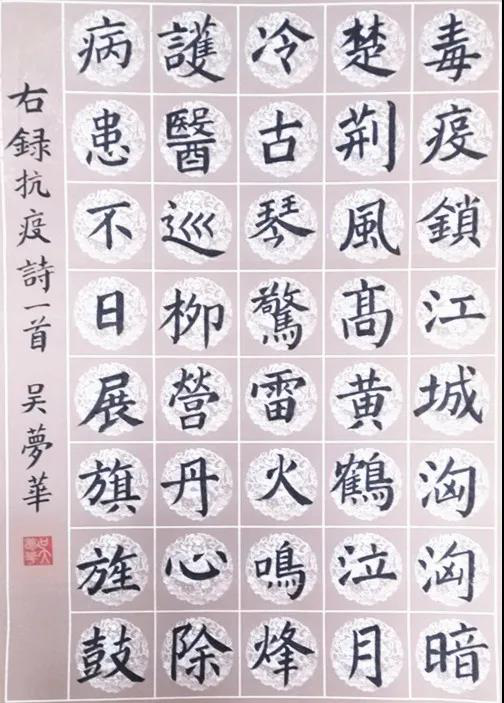 毒疫鎖江城洶洶暗
楚荆風髙黄鶴泣月
冷古琴驚雷火鳴烽
護醫巡柳營丹心除
病患不日展旗旌鼓
右録抗疫詩一首 吴夢華